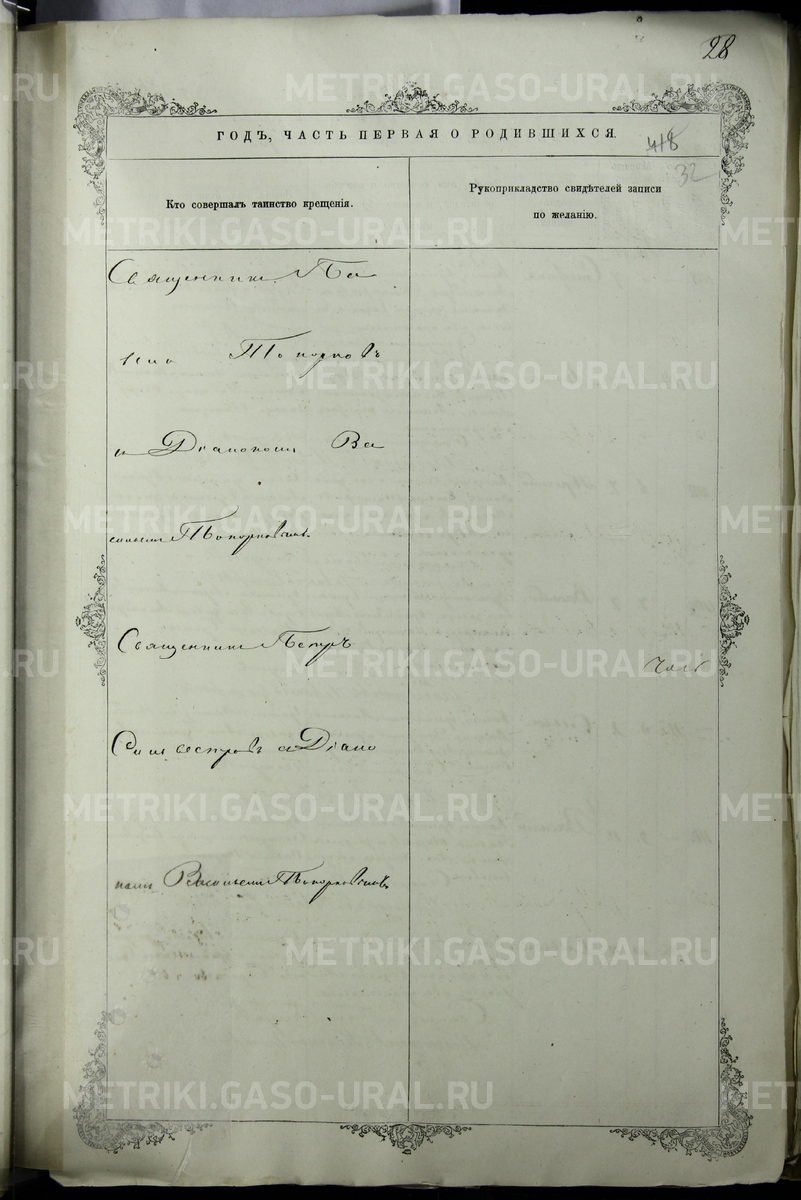 28
ГОДЪ, ЧАСТЬ ПЕРВАЯ О РОДИВШИХСЯ.
418
32
Кто совершалъ таинство крещенія.
Рукоприкладство свидѣтелей записи
по желанію.
Священникъ Па
Топорковъ
и Діакономъ Ва
силіемъ Топорковымъ
Священникъ Петръ
Сильвестровъ съ Діако
номъ Василіемъ Топорковымъ
METRIKI.GASO-URAL.RU